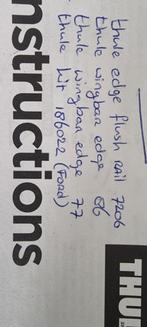 thule edge flush rail 7206
thule wingbar edge 86
thule wingbar edge 77
thule kit 186022 (Ford)
nstructions
THU